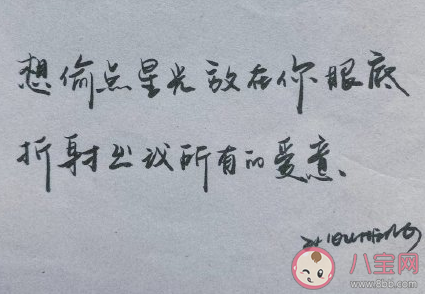 想偷点星光放在你眼底
折射出我所有的爱意、
八宝网
www.8bb.com